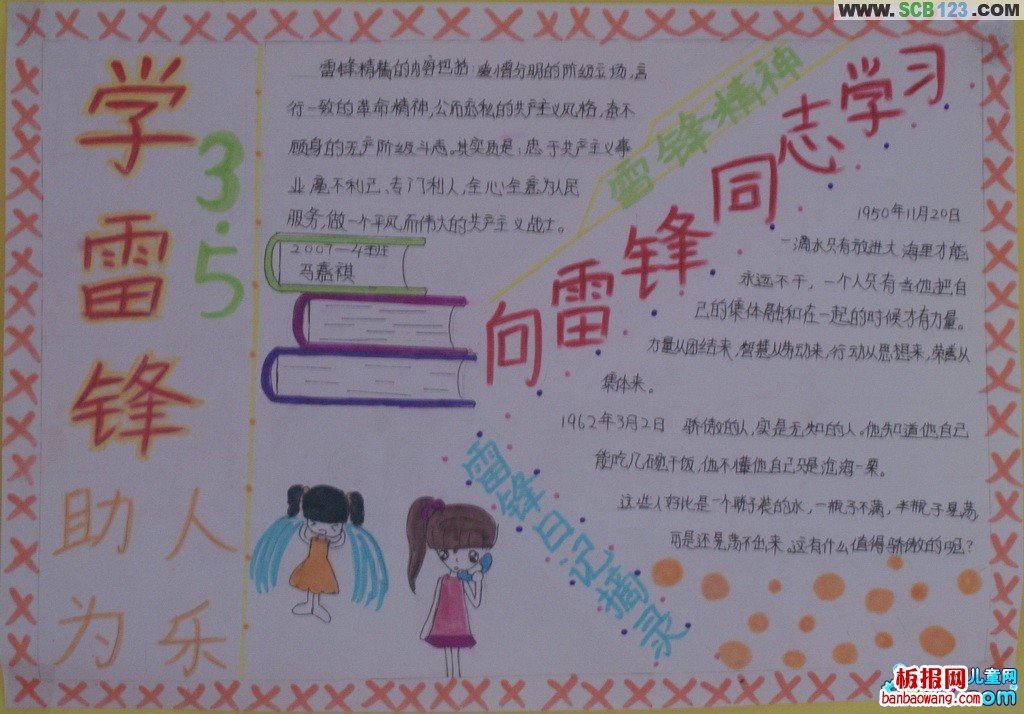 WWW.SCB123.COM
学雷锋
3.5
助人
为乐
雷锋精神的内容包括:爱憎分明的阶级立场,言
行一致的革命精神,公而忘私的共产主义风格,奋不
顾身的无产阶级斗志。其实质是:忠于共产主义事
业,毫不利己、专门利人,全心全意为人民
服务,做一个平凡而伟大的共产主义战士。
2007-4班
马嘉祺
雷锋精神
向雷锋同志学习
1950年11月20日
一滴水只有放进大海里才能
永远不干,一个人只有当他把自
己的集体融和在一起的时候才有力量。
力量从团结来,智慧从劳动来,行动从思想来,荣誉从
集体来。
1962年3月2日 骄傲的人,实是无知的人。他知道他自己
能吃几碗干饭,他不懂他自己只是沧海一粟。
这些人好比是一个瓶子装的水,一瓶子不满,半瓶子晃荡
可是还晃荡不出来。这有什么值得骄傲的呢?
雷锋日记摘录
儿童网
板报网
banbaowang.com